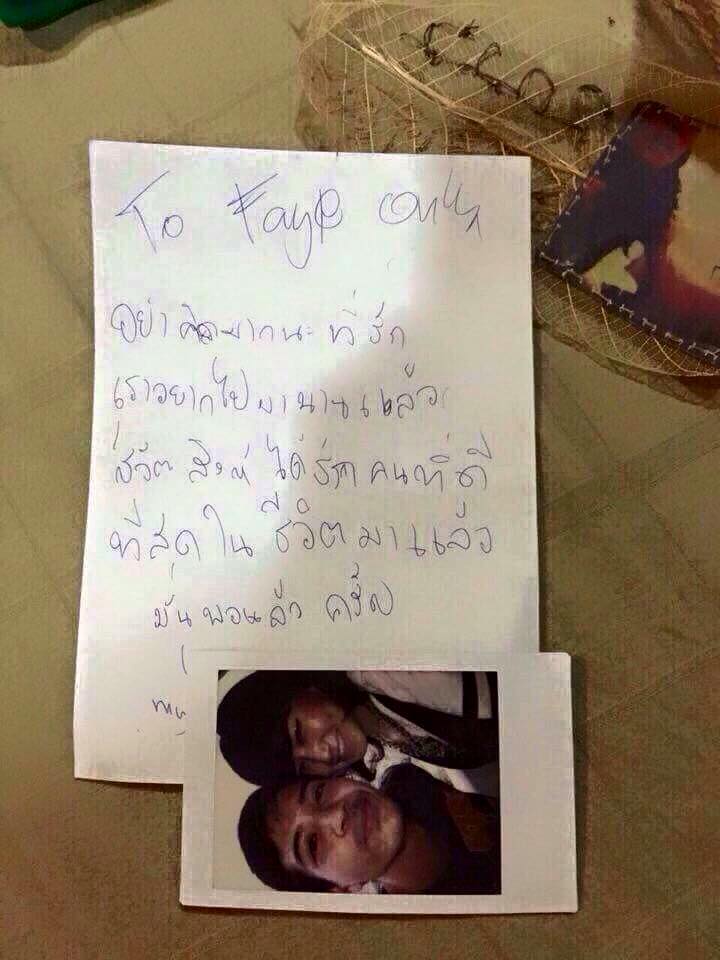 To Faye only
อย่าคิดมากนะ ที่รัก
เราอยากไปมานานแล้ว
ชีวิต สิงห์ ได้รัก คนที่ดี
ที่สุด ใน ชีวิต มาแล้ว
มันพอแล้ว ครับ